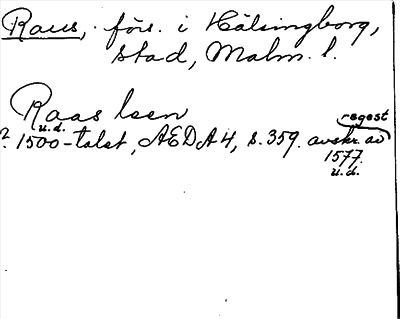 Raus, förs. i Hälsingborg,
stad, Malm. l.
Raas leen
u.d.
? 1500-talet, AEDA4, s. 359. avskr. av
regest
1577.
u.d.